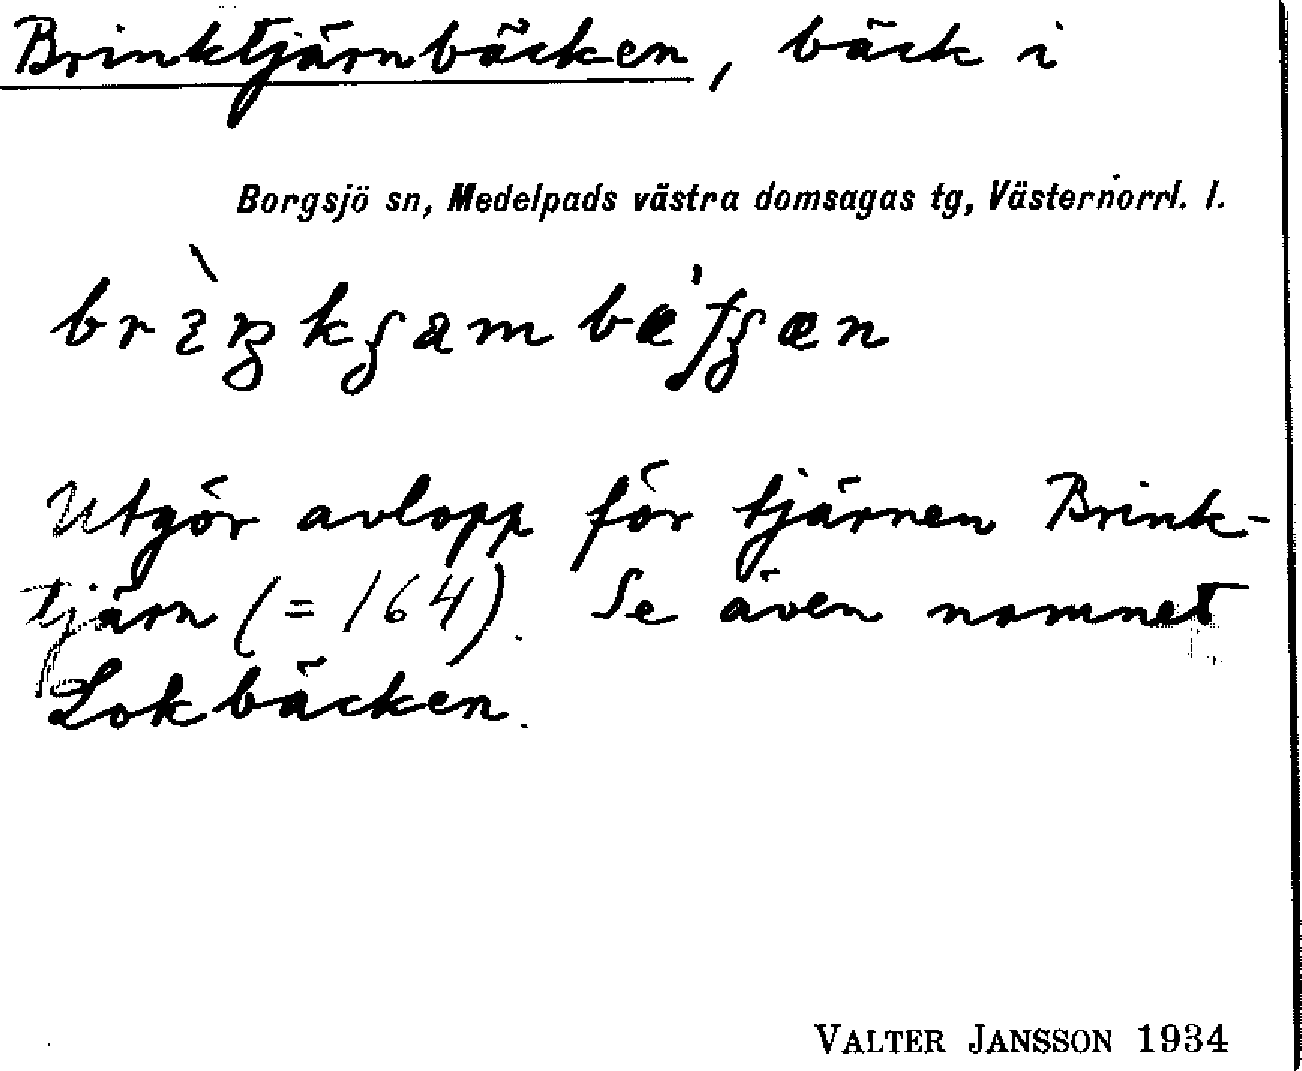 Brinktjärnbäcken, bäck i
Borgsjö sn, Medelpads västra domsagas tg, Västernorrl. l.
Utgör avlopp för tjärnen Brink-
tjärn (= 164). Se även namnet
Lokbäcken.
VALTER JANSSON 1934